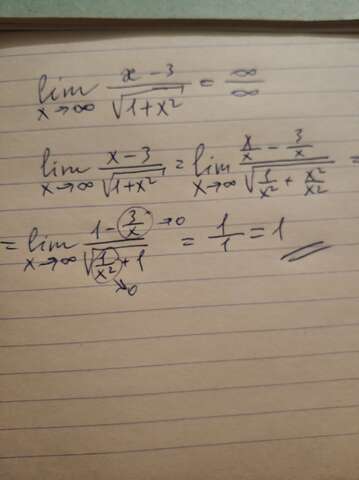 lim x→∞ (x-3)/√(1+x²) = ∞/∞
lim x→∞ (x-3)/√(1+x²) = lim x→∞ (x/x - 3/x)/√(1/x² + x²/x²) =
= lim x→∞ (1 - 3/x →0)/√(1/x² →0 + 1) = 1/1 = 1